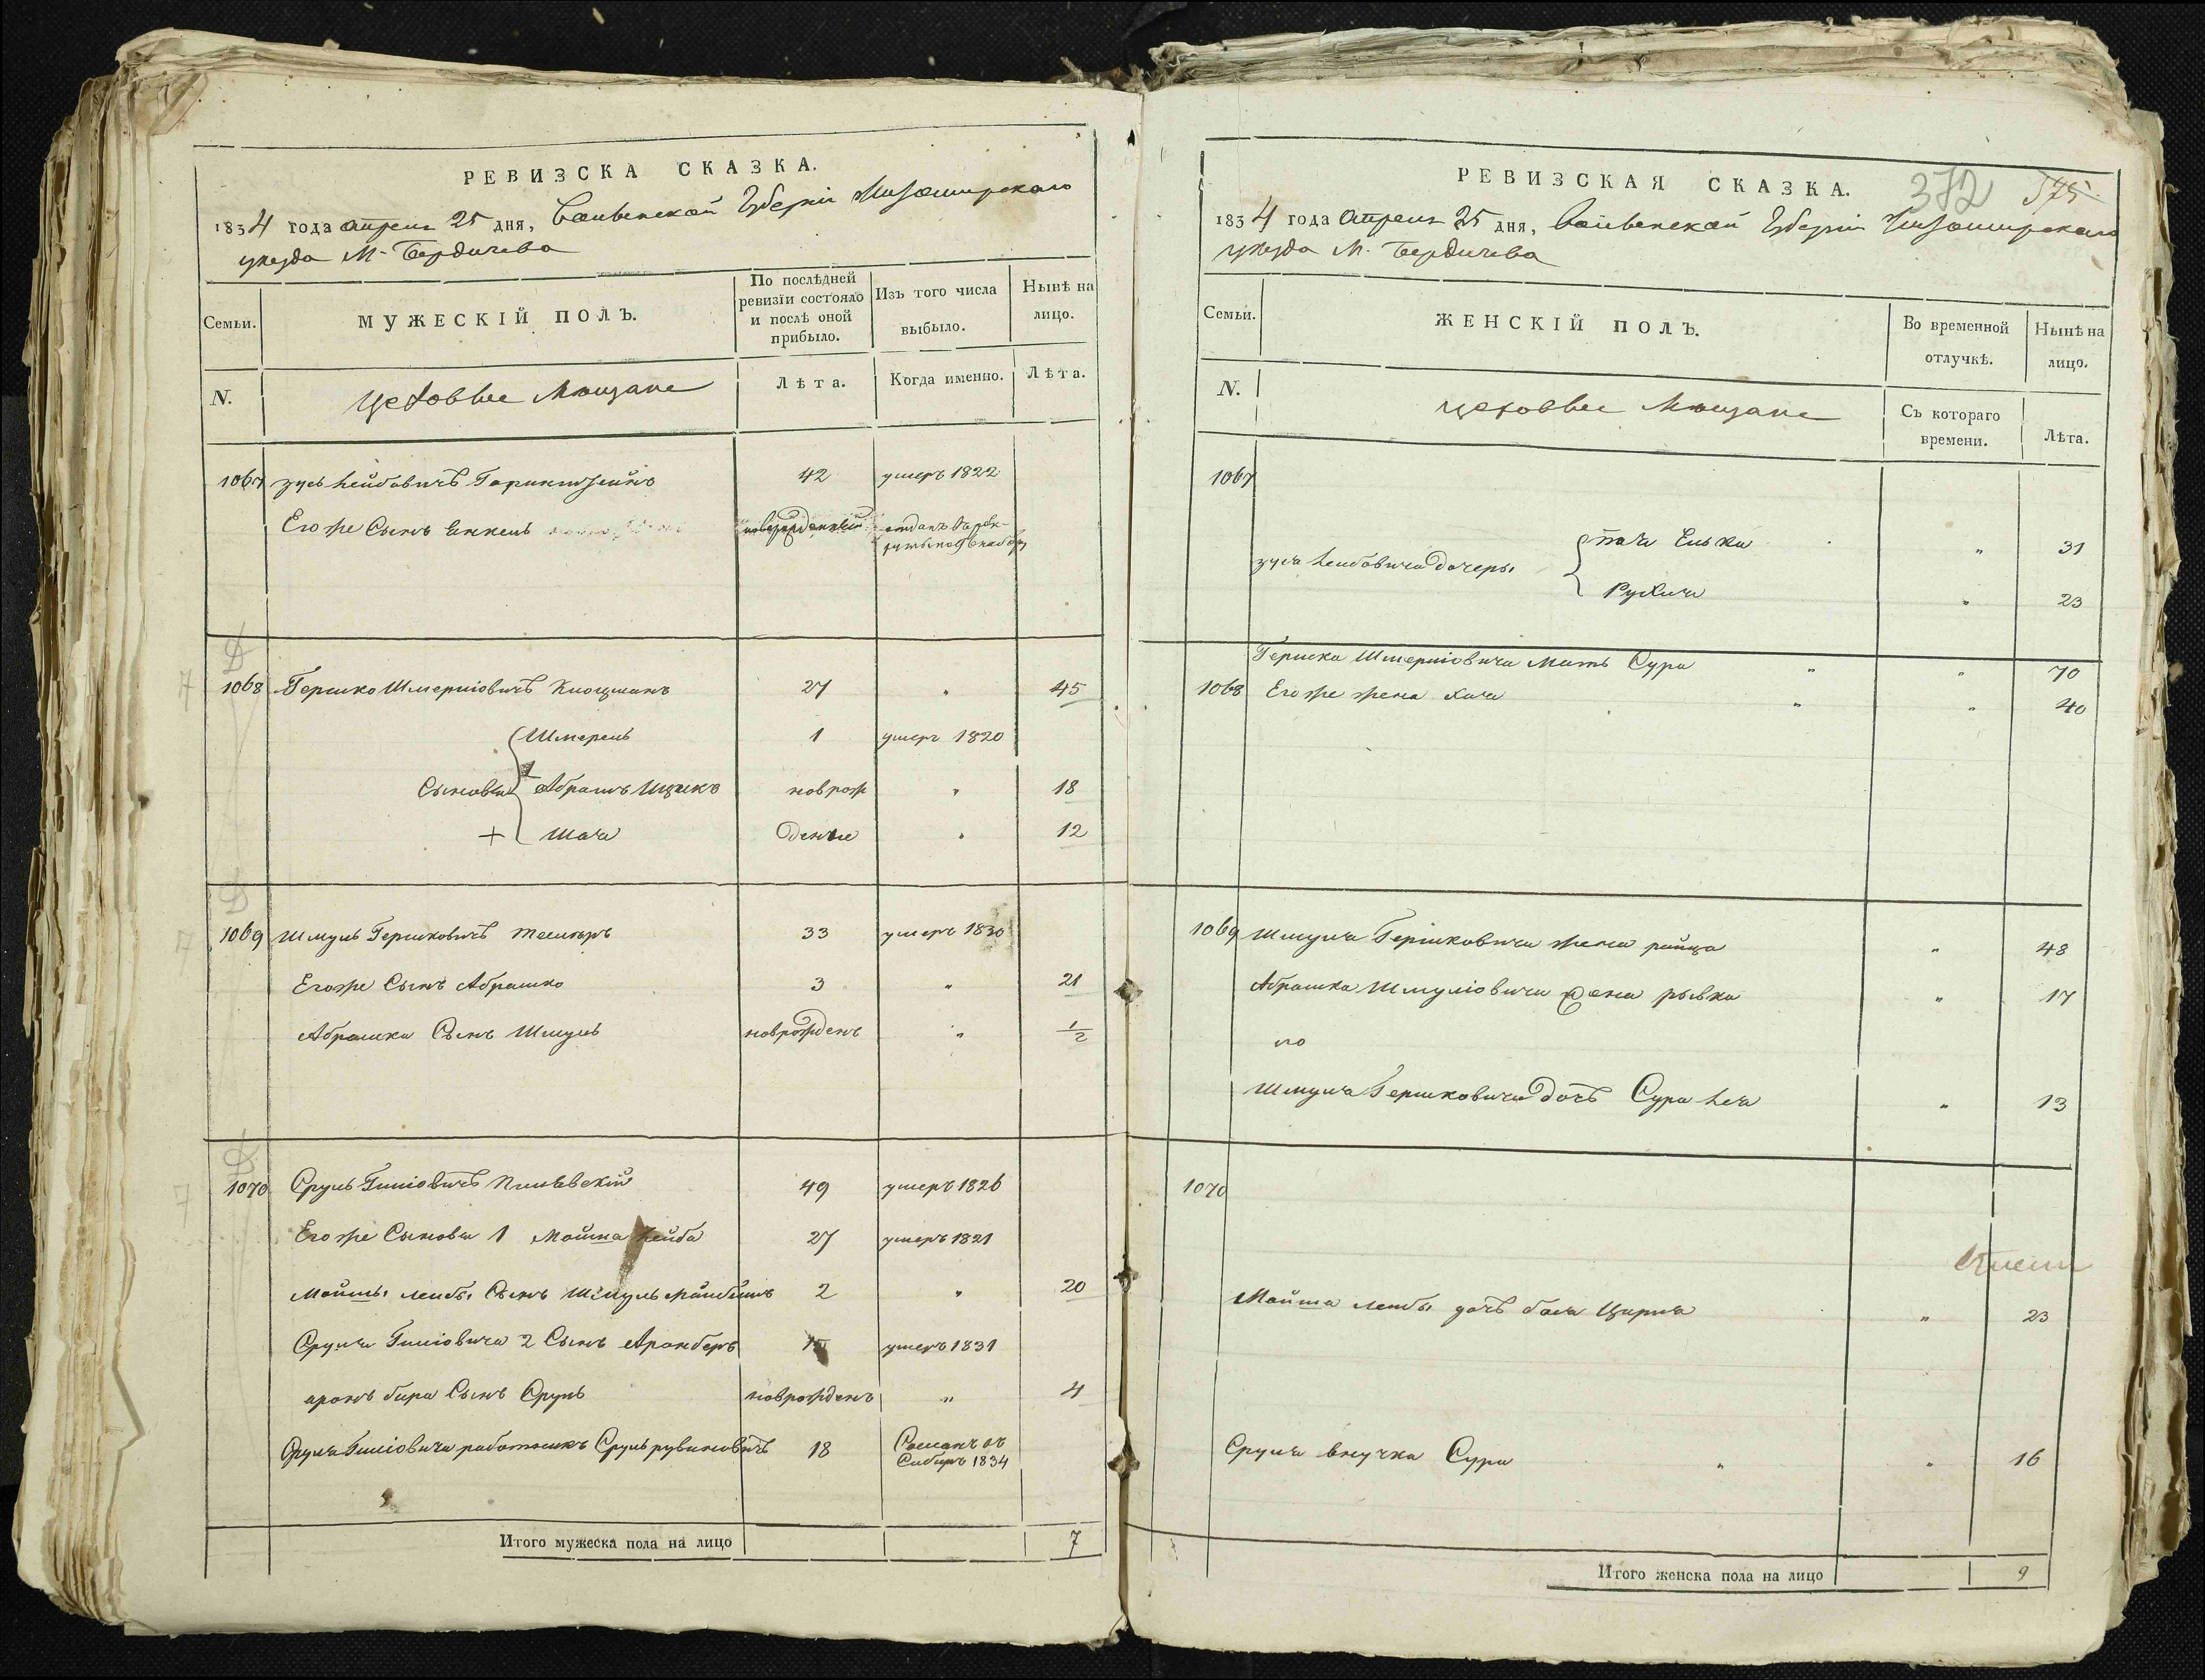 РЕВИЗСКА СКАЗКА.
1834 года апреля 25 дня, Волынской Губерніи Житомирскаго
уезда М. Бердичева
Семьи.
МУЖЕСКІЙ ПОЛЪ.
По послѣдней ревизіи состояло и послѣ оной прибыло.
Изъ того числа выбыло.
Нынѣ на лицо.
N.
Цеховые Мещане
Лѣта.
Когда именно.
Лѣта.
1067 Зусь Лейбовичъ 42 умеръ 1822
Его же Сынъ Янкель новорожденный отданъ въ рек-
1068 Гершко Шмерліовичъ 27 " 45
Шмерель 1 умеръ 1820
Сыновья Абрамъ Ицыкъ новрож " 18
+ Шаи денные " 12
1069 Шмуль Гершковичъ 33 умеръ 1830
Его же Сынъ Абрашко 3 " 21
Абрашка Сынъ Шмуль новрожденъ " 1/2
1070 Сруль 49 умеръ 1826
Его же Сыновья 1 Мошка Лейба 27 умеръ 1821
Лейбы Сынъ Шмуль 2 " 20
Сруля 2 Сынъ Аронберъ 15 умеръ 1831
аронъ бера Сынъ Сруль новрожденъ " 4
Сруля работникъ Сруль рувиновичъ 18 Сосланъ въ
Сибирь 1834
Итого мужеска пола на лицо 7
РЕВИЗСКАЯ СКАЗКА.
372 575
1834 года апреля 25 дня, Волынской Губерніи Житомирскаго
уезда М. Бердичева
Семьи.
ЖЕНСКІЙ ПОЛЪ.
Во временной отлучкѣ.
Нынѣ на лицо.
N.
Цеховые Мещане
Съ котораго времени.
Лѣта.
1067
Элька " 31
Зуся Лейбовича дочеры
Рухля " 23
Гершка Шмерліовича Мать Сура " " 70
1068 Его же жена Хая " " 40
1069 Шмуля Гершковича жена райца " 48
Абрашка Шмуліовича жена рывка " 17
Шмуля Гершковича дочъ Сура Лея " 13
1070
Лейбы дочъ бася Цирля " 23
Сруля внучка Сура " " 16
Итого женска пола на лицо 9